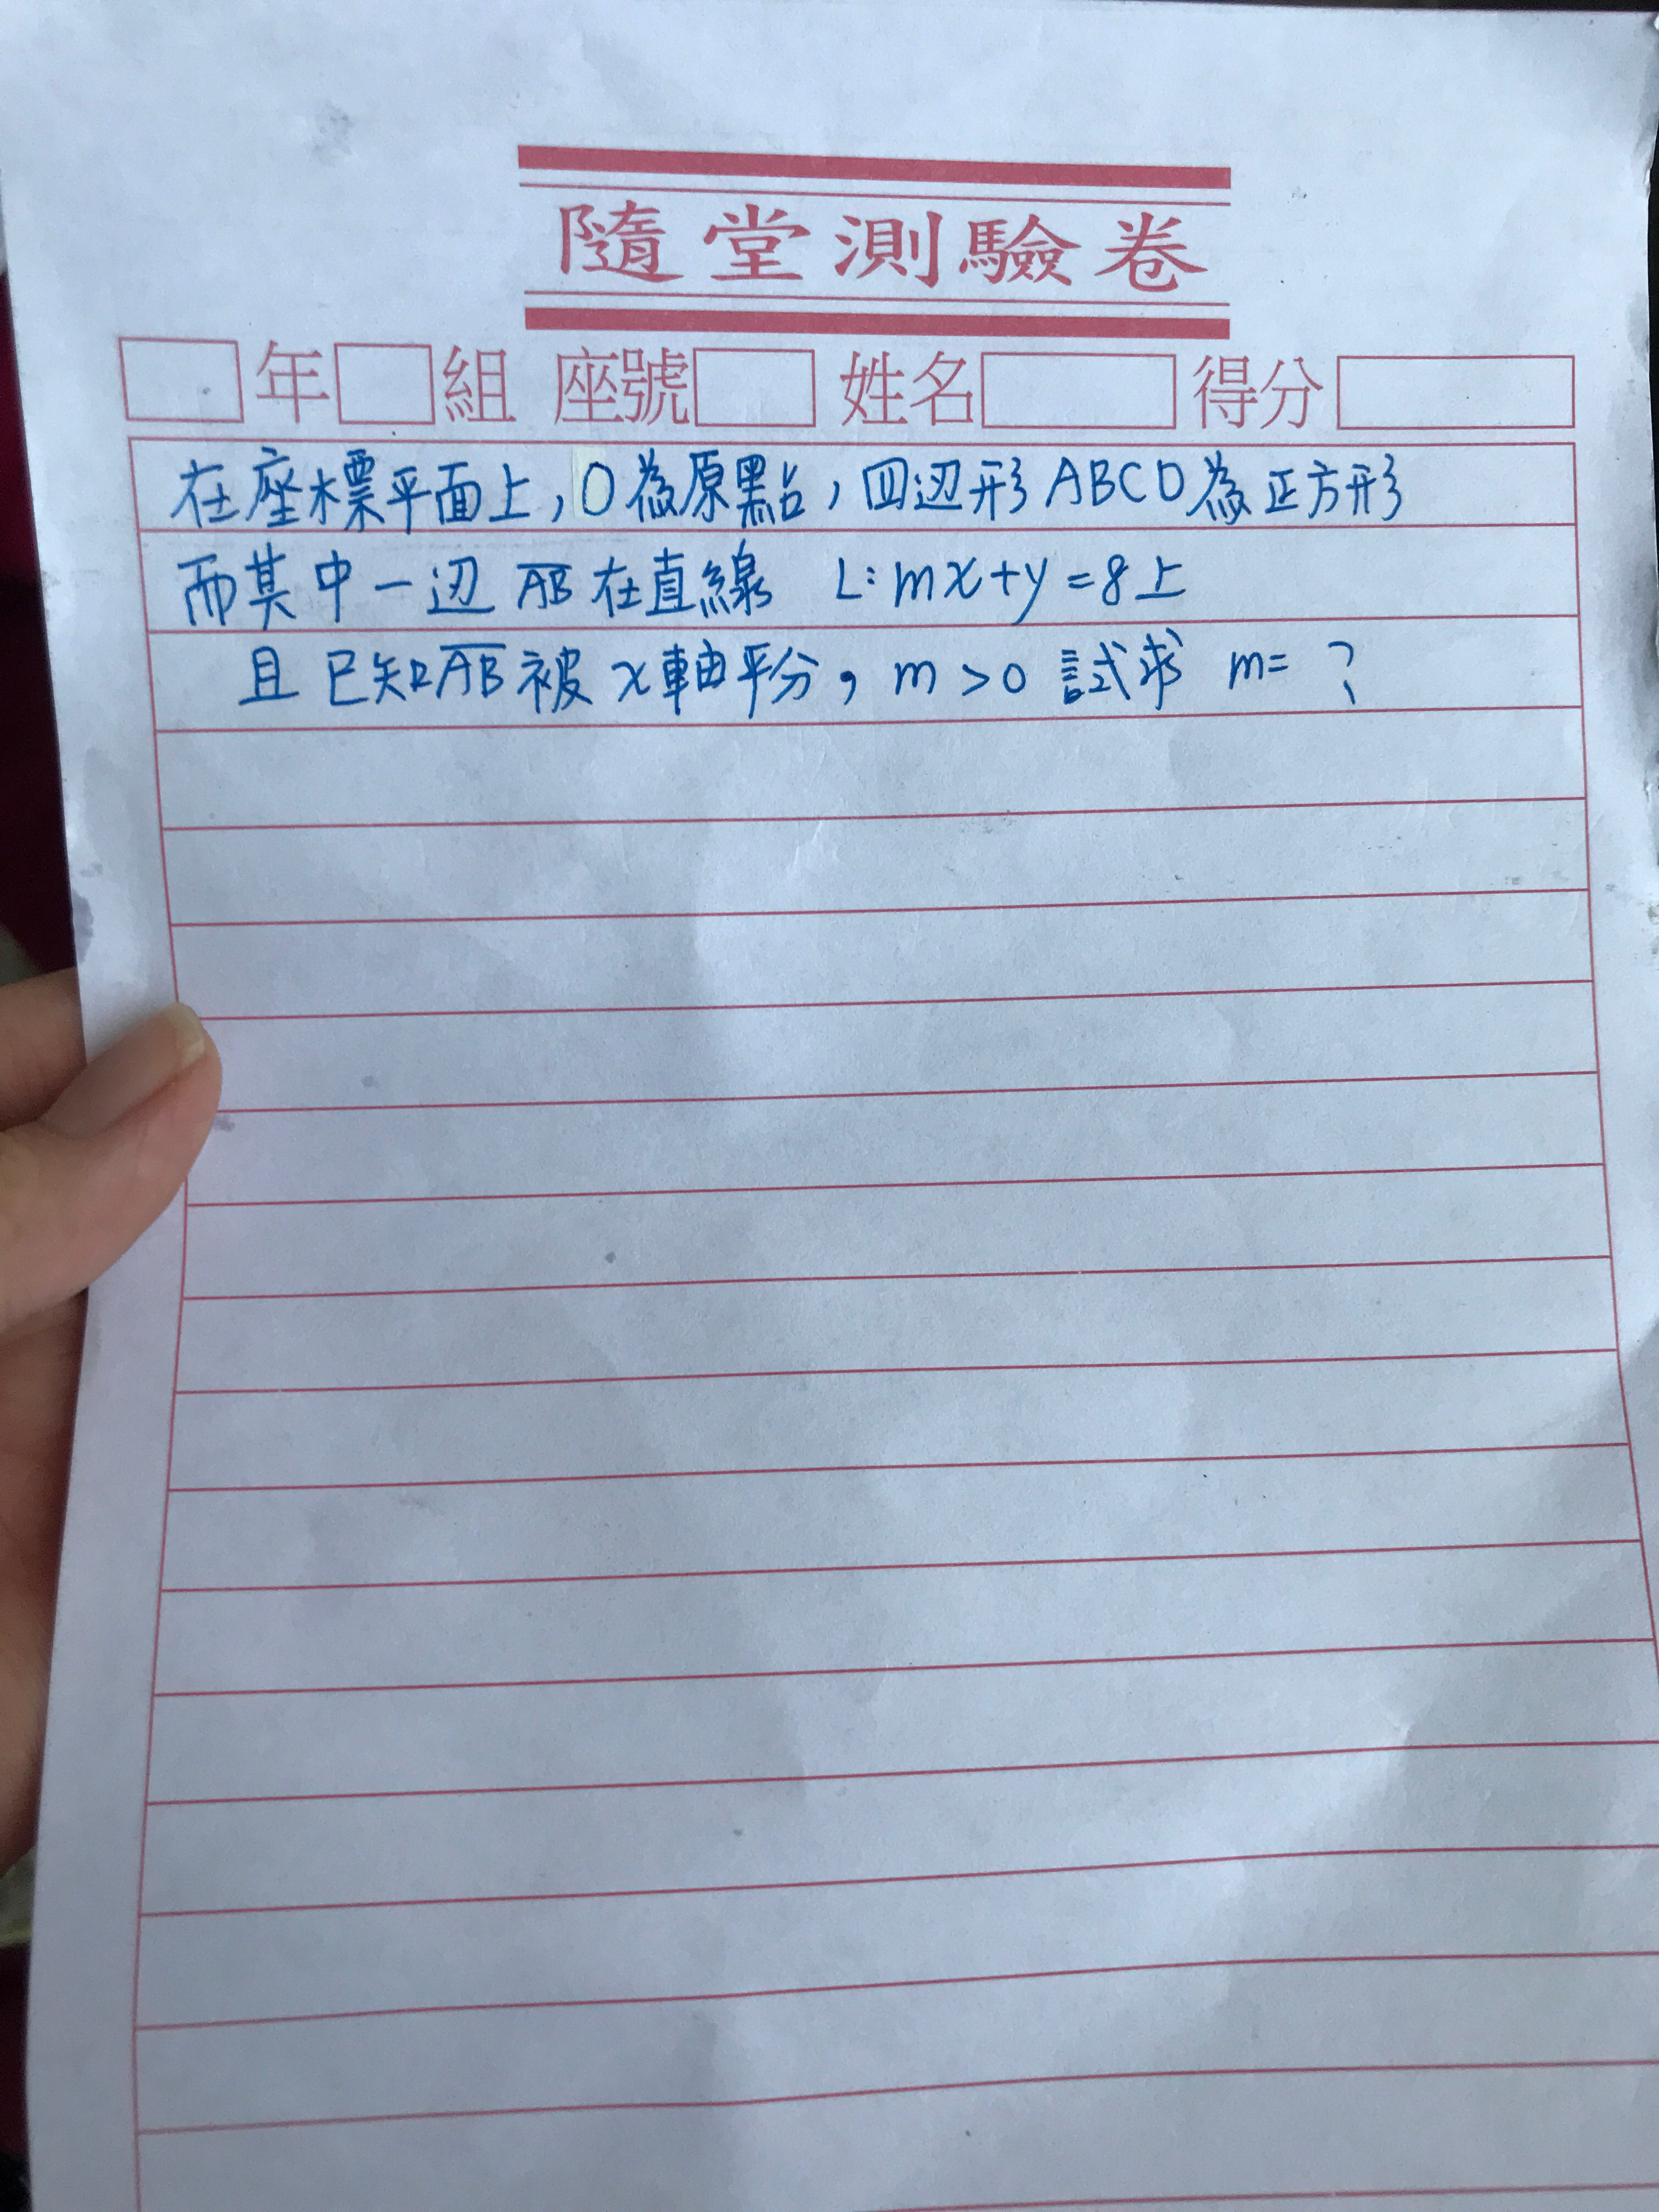 隨堂測驗卷
年 組 座號 姓名 得分
在座標平面上，O為原點，四边形ABCD為正方形
而其中一边AB在直線 L：mx+y=8上
且已知AB被x軸平分，m>0 試求 m= ？